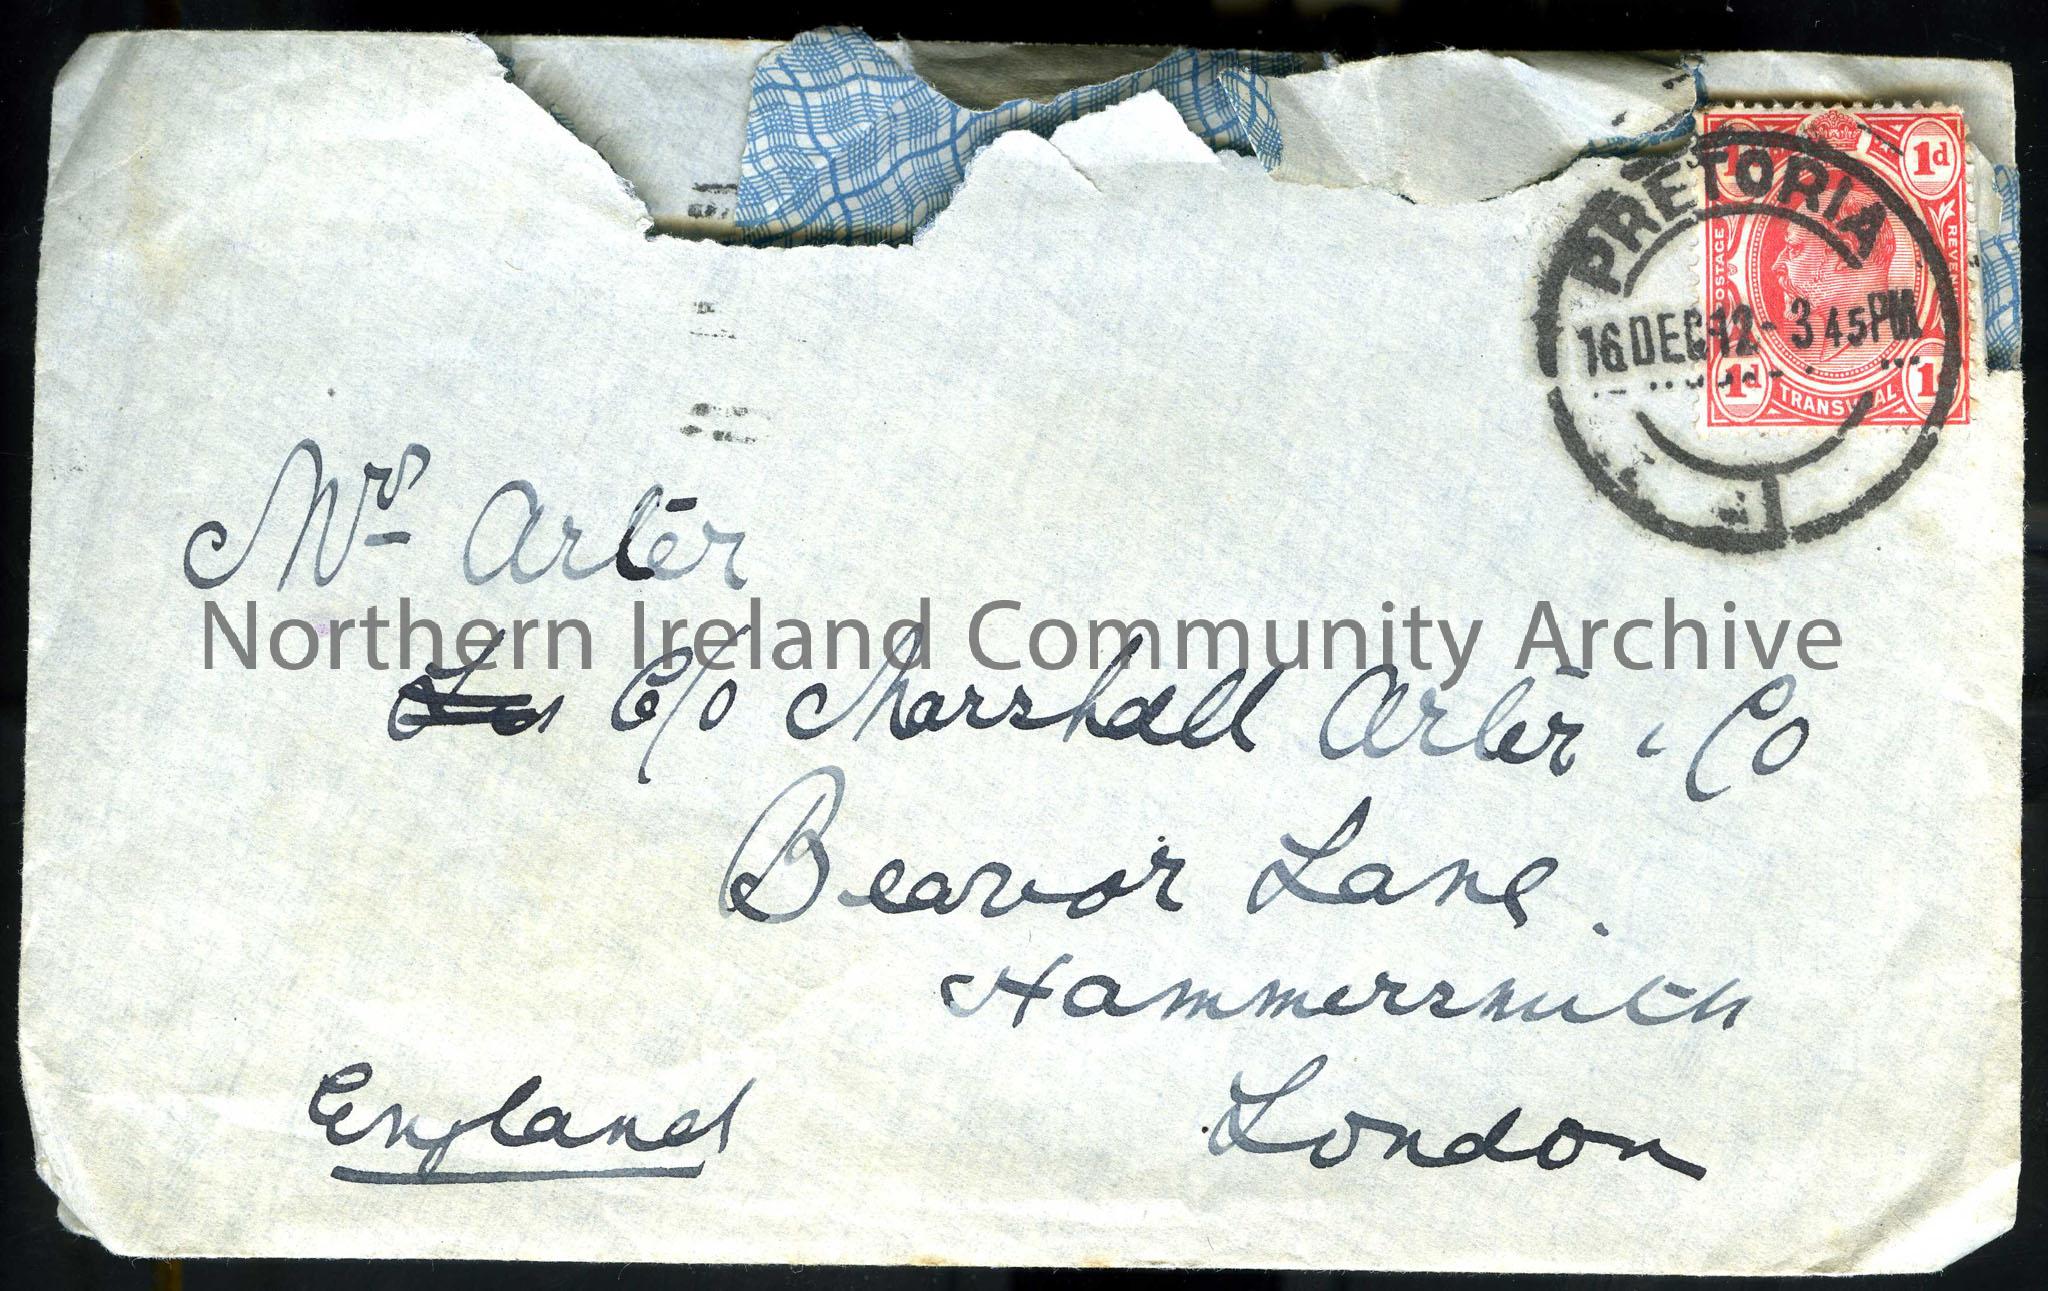 PRETORIA
16 DEC 12 - 3 45 PM
1d 1d
POSTAGE REVENUE
1d 1d
TRANSVAAL
Mrs Arter
Northern Ireland Community Archive
C/o Marshall Arter & Co
Beavor Lane.
Hammersmith
England London